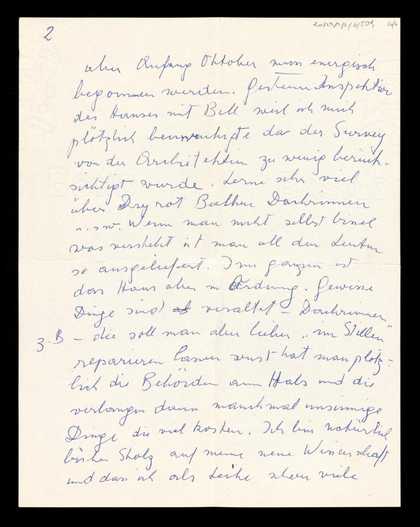 2
aber Anfang Oktober muss energisch
begonnen werden. Gestern Inspektion
des Hauses mit Bill weil ich mich
plötzlich beunruhigte das der Survey
von der Architektin zu wenig berück-
sichtigt wurde. Lerne sehr viel
über Dry rot Dachrinnen
u.s.w. Wenn man nicht selbst
was versteht ist man all den Leuten
so ausgeliefert. Im ganzen ist
das Haus aber in Ordnung. Gewisse
Dinge sind veraltet – Dachrinnen
z.B – die soll man aber lieber "im Stillen"
reparieren lassen sonst hat man plötz-
lich die Behörden am Hals und die
verlangen dann manchmal unsinnige
Dinge die viel kosten. Ich bin natürlich
bisschen Stolz auf meine neue Wissenschaft
und das ich als schon viele